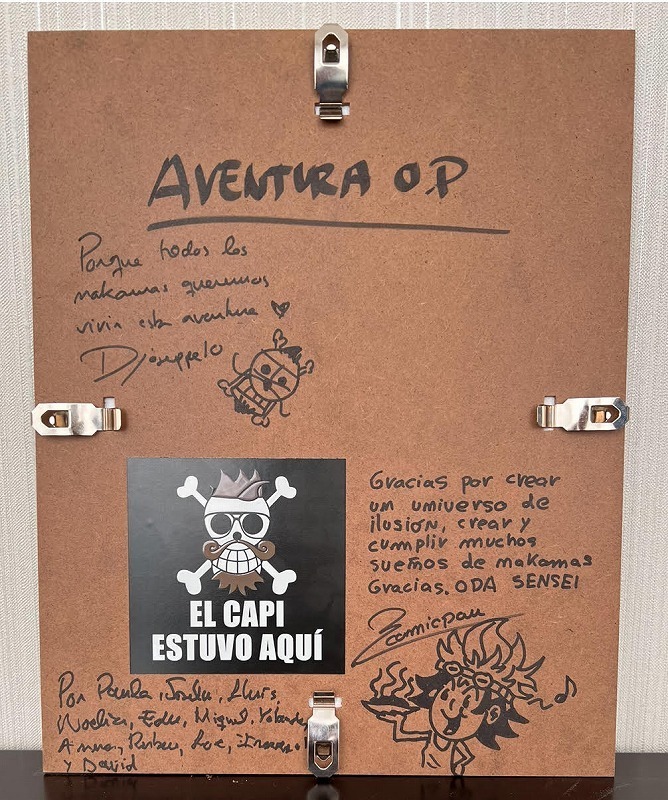 AVENTURA O.P
Porque todos los
nakamas queremos
vivir esta aventura
EL CAPI
ESTUVO AQUÍ
Gracias por crear
un umiverso de
ilusión, crear y
cumplir muchos
sueños de makamas
Gracias. ODA SENSEI
Zamicpau
Por Paula, Lluis,
Noelia, Edu, Miguel, Yolanda,
Anna, Ruben,
y David